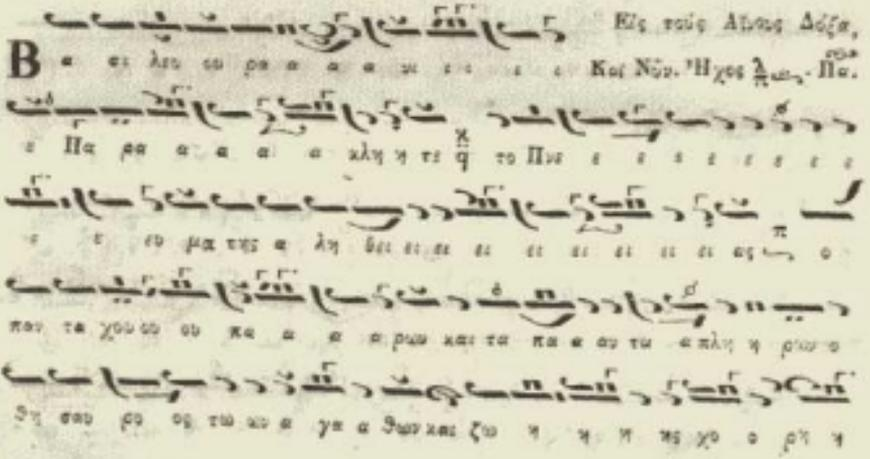 Εἰς τούς Αἴνους Δόξα,
Β α σι λευ ου ρα α α α νι ει ει ε ε Καί Νῦν. Ἦχος Πα.
ε Πα ρα α α α α κλη η τε το Πνε ε ε ε ε ε ε ε
ε ε ευ μα της α λη θει ει ει ει ει ει ει ει ει ας ο
παν τα χου ου ου πα α α α ρων και τα πα α αν τα α πλη η ρων ο
θη σαυ ρο ος των α γα α θων και ζω η η η ης χο ο ρη η